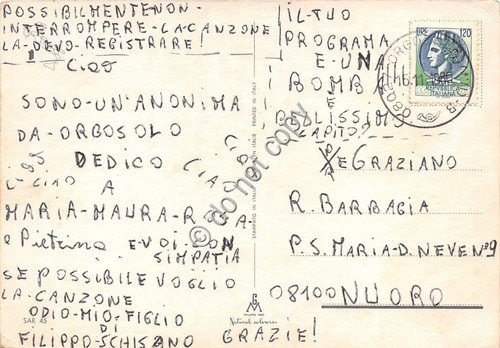 POSSIBILMENTE NON-
INTERROMPERE-LA-CANZONE
LA-DEVO-REGISTRARE!
CIAO
SONO-UN'ANONIMA
DA-ORGOSOLO
DEDICO
CIAO A
CIAO
MARIA-MAURA-ROSA
e Pietrina E VOI-CON
SIMPATIA
SE POSSIBILE VOGLIO
LA-CANZONE
ODIO-MIO-FIGLIO
DI
FILIPPO-SCHISANO
GRAZIE!
SAR 45
Natural colours
STAMPATO IN ITALY
PRINTED IN ITALY
GM
MILANO
do not copy
IL-TUO
PROGRAMA
E-UNA
BOMBA
E
BELLISSIMO
CAPITO?
LIRE 120
16.11
PER
GRAZIANO
R. BARBAGIA
P.S. MARIA-D. NEVE Nº9
08100 NUORO